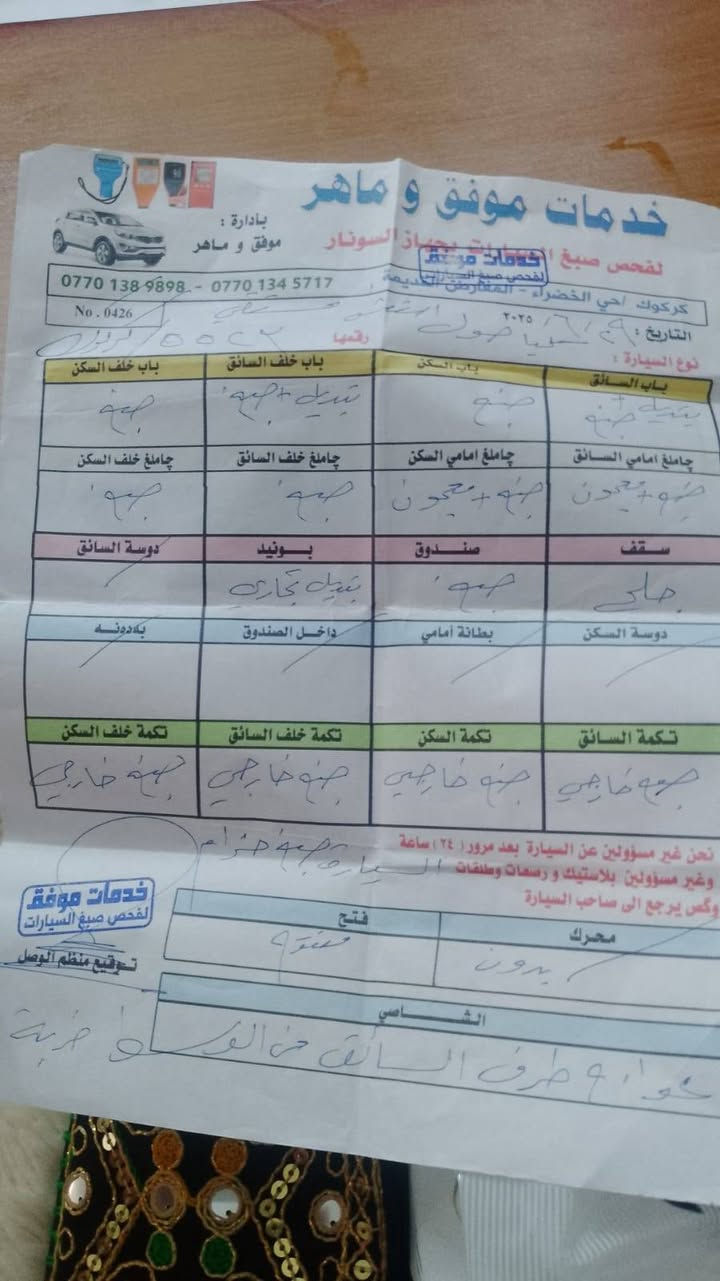 خدمات موفق و ماهر
لفحص صبغ السيارات بجهاز السونار
بادارة :
موفق و ماهر
خدمات موفق
لفحص صبغ السيارات
كركوك /حي الخضراء - المعارض القديمة
0770 138 9898 - 0770 134 5717
No . 0426
التاريخ : ٢٩ / ٦ / ٢٠٢٥
نوع السيارة :
رقمها
باب السائق باب السكن باب خلف السائق باب خلف السكن
تبديل + صبغ صبغ تبديل + صبغ صبغ
چاملغ امامي السائق چاملغ امامي السكن چاملغ خلف السائق چاملغ خلف السكن
صبغ + معجون صبغ + معجون صبغ صبغ
سقف صندوق بونيد دوسة السائق
صبغ تبديل تجاري
دوسة السكن بطانة أمامي داخل الصندوق
تكمة السائق تكمة السكن تكمة خلف السائق تكمة خلف السكن
صبغ خارجي صبغ خارجي صبغ خارجي صبغ خارجي
نحن غير مسؤولين عن السيارة بعد مرور (٢٤) ساعة
وغير مسؤولين بلاستيك و رسعات وطلقات
وگص يرجع الى صاحب السيارة
السيارة صبغ
خدمات موفق
لفحص صبغ السيارات
توقيع منظم الوصل
محرك فتح
بدون
الشاصي
طرف السائق من ضربة